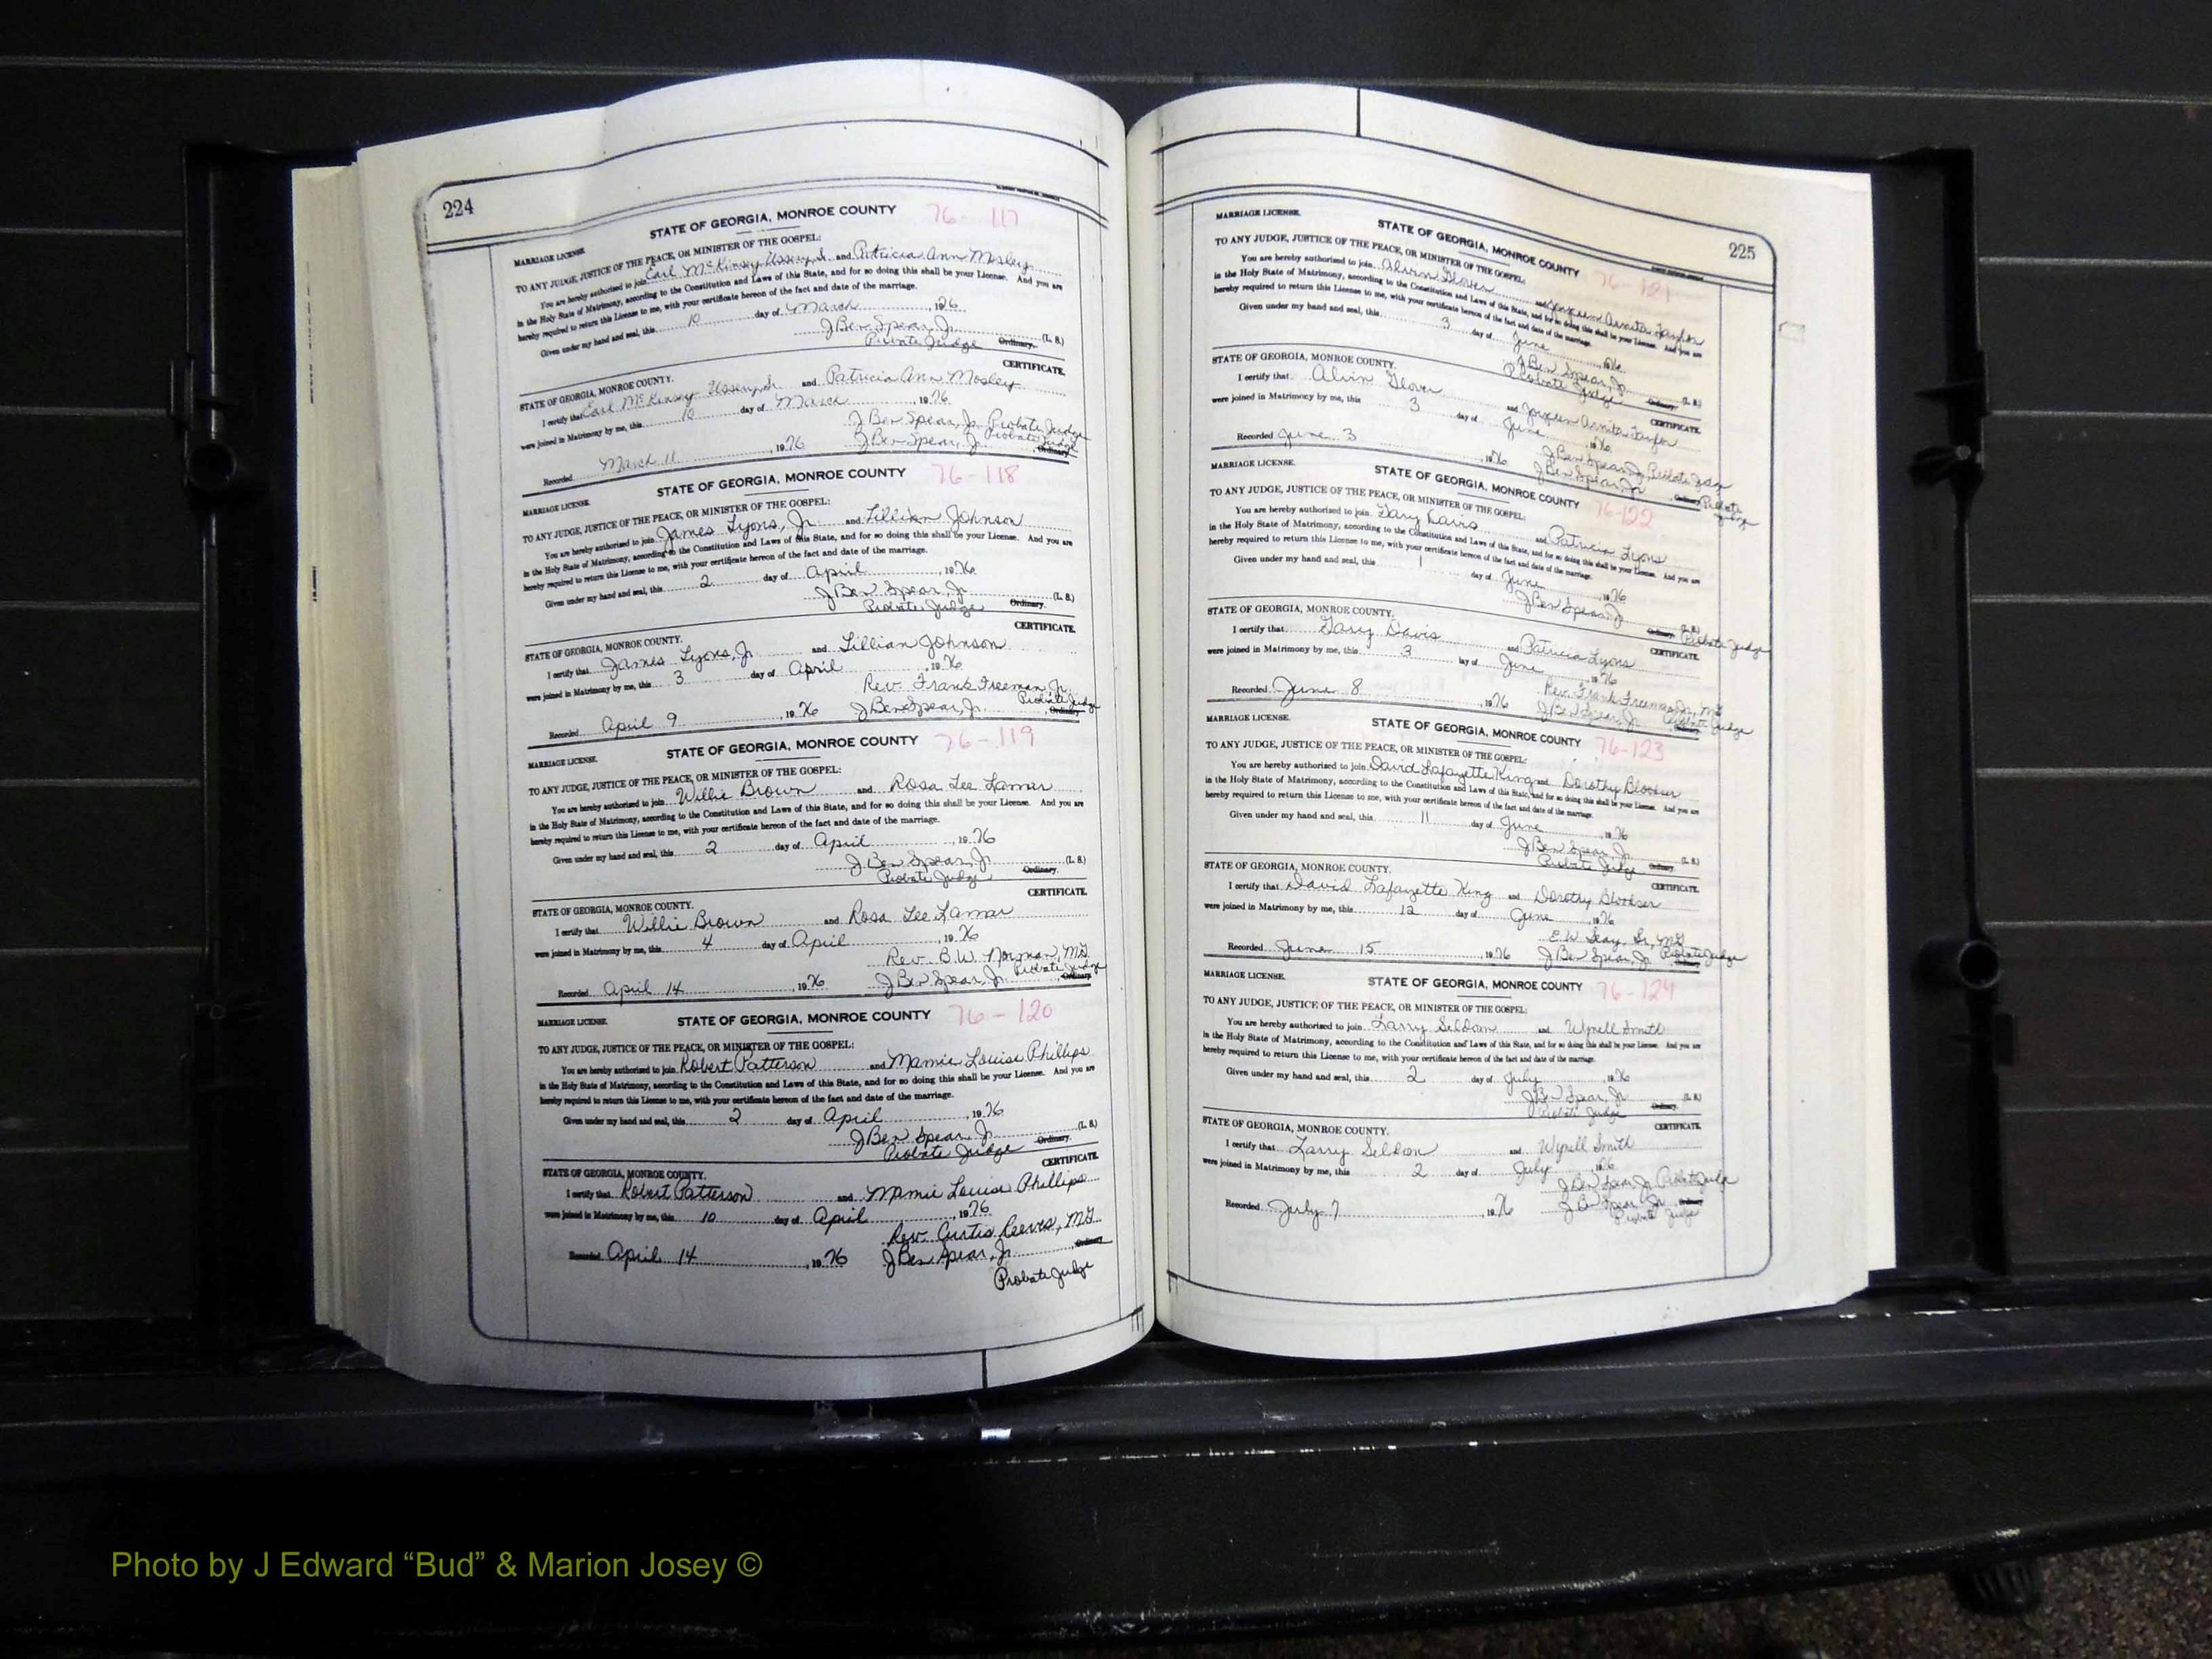 224
STATE OF GEORGIA, MONROE COUNTY 76-117
MARRIAGE LICENSE.
TO ANY JUDGE, JUSTICE OF THE PEACE, OR MINISTER OF THE GOSPEL:
You are hereby authorized to join Earl McKinsey Ussery, Sr. and Patricia Ann Mosley
in the Holy State of Matrimony, according to the Constitution and Laws of this State, and for so doing this shall be your License. And you are
hereby required to return this License to me, with your certificate hereon of the fact and date of the marriage.
Given under my hand and seal, this 10 day of March, 1976
J Ben Spear, Jr. (L. S.)
Probate Judge Ordinary.
CERTIFICATE.
STATE OF GEORGIA, MONROE COUNTY.
I certify that Earl McKinsey Ussery, Sr. and Patricia Ann Mosley
were joined in Matrimony by me, this 10 day of March, 1976
J Ben Spear, Jr. Probate Judge
Recorded March 11, 1976 J Ben Spear, Jr. Probate Judge Ordinary
STATE OF GEORGIA, MONROE COUNTY 76-118
MARRIAGE LICENSE.
TO ANY JUDGE, JUSTICE OF THE PEACE, OR MINISTER OF THE GOSPEL:
You are hereby authorized to join James Lyons, Jr. and Lillian Johnson
in the Holy State of Matrimony, according to the Constitution and Laws of this State, and for so doing this shall be your License. And you are
hereby required to return this License to me, with your certificate hereon of the fact and date of the marriage.
Given under my hand and seal, this 2 day of April, 1976
J Ben Spear, Jr. (L. S.)
Probate Judge Ordinary.
CERTIFICATE.
STATE OF GEORGIA, MONROE COUNTY.
I certify that James Lyons, Jr. and Lillian Johnson
were joined in Matrimony by me, this 3 day of April, 1976
Rev. Frank Freeman, Jr.
Recorded April 9, 1976 J Ben Spear, Jr. Probate Judge Ordinary
STATE OF GEORGIA, MONROE COUNTY 76-119
MARRIAGE LICENSE.
TO ANY JUDGE, JUSTICE OF THE PEACE, OR MINISTER OF THE GOSPEL:
You are hereby authorized to join Willie Brown and Rosa Lee Lamar
in the Holy State of Matrimony, according to the Constitution and Laws of this State, and for so doing this shall be your License. And you are
hereby required to return this License to me, with your certificate hereon of the fact and date of the marriage.
Given under my hand and seal, this 2 day of April, 1976
J Ben Spear, Jr. (L. S.)
Probate Judge Ordinary.
CERTIFICATE.
STATE OF GEORGIA, MONROE COUNTY.
I certify that Willie Brown and Rosa Lee Lamar
were joined in Matrimony by me, this 4 day of April, 1976
Rev. B.W. Norman, MG
Recorded April 14, 1976 J Ben Spear, Jr. Probate Judge Ordinary
MARRIAGE LICENSE. STATE OF GEORGIA, MONROE COUNTY 76-120
TO ANY JUDGE, JUSTICE OF THE PEACE, OR MINISTER OF THE GOSPEL:
You are hereby authorized to join Robert Patterson and Mamie Louise Phillips
in the Holy State of Matrimony, according to the Constitution and Laws of this State, and for so doing this shall be your License. And you are
hereby required to return this License to me, with your certificate hereon of the fact and date of the marriage.
Given under my hand and seal, this 2 day of April, 1976
J Ben Spear, Jr. (L. S.)
Probate Judge Ordinary.
CERTIFICATE.
STATE OF GEORGIA, MONROE COUNTY.
I certify that Robert Patterson and Mamie Louise Phillips
were joined in Matrimony by me, this 10 day of April, 1976
Rev. Curtis Reeves, MG
Recorded April 14, 1976 J Ben Spear, Jr. Ordinary
Probate Judge
225
MARRIAGE LICENSE. STATE OF GEORGIA, MONROE COUNTY 76-121
TO ANY JUDGE, JUSTICE OF THE PEACE, OR MINISTER OF THE GOSPEL:
You are hereby authorized to join Alvin Glover and Annita Taylor
in the Holy State of Matrimony, according to the Constitution and Laws of this State, and for so doing this shall be your License. And you are
hereby required to return this License to me, with your certificate hereon of the fact and date of the marriage.
Given under my hand and seal, this 3 day of June, 1976
J Ben Spear, Jr. (L. S.)
Probate Judge Ordinary.
STATE OF GEORGIA, MONROE COUNTY. CERTIFICATE.
I certify that Alvin Glover and Annita Taylor
were joined in Matrimony by me, this 3 day of June, 1976
J Ben Spear, Jr. Probate Judge
Recorded June 3, 1976 J Ben Spear, Jr. Ordinary Probate Judge
MARRIAGE LICENSE. STATE OF GEORGIA, MONROE COUNTY 76-122
TO ANY JUDGE, JUSTICE OF THE PEACE, OR MINISTER OF THE GOSPEL:
You are hereby authorized to join Gary Davis and Patricia Lyons
in the Holy State of Matrimony, according to the Constitution and Laws of this State, and for so doing this shall be your License. And you are
hereby required to return this License to me, with your certificate hereon of the fact and date of the marriage.
Given under my hand and seal, this 1 day of June, 1976
J Ben Spear, Jr. (L. S.)
Ordinary. Probate Judge
STATE OF GEORGIA, MONROE COUNTY. CERTIFICATE.
I certify that Gary Davis and Patricia Lyons
were joined in Matrimony by me, this 3 day of June, 1976
Rev. Frank Freeman, Jr., MG
Recorded June 8, 1976 J Ben Spear, Jr. Probate Judge Ordinary
MARRIAGE LICENSE. STATE OF GEORGIA, MONROE COUNTY 76-123
TO ANY JUDGE, JUSTICE OF THE PEACE, OR MINISTER OF THE GOSPEL:
You are hereby authorized to join David Lafayette King and Dorothy Bloodser
in the Holy State of Matrimony, according to the Constitution and Laws of this State, and for so doing this shall be your License. And you are
hereby required to return this License to me, with your certificate hereon of the fact and date of the marriage.
Given under my hand and seal, this 11 day of June, 1976
J Ben Spear, Jr. (L. S.)
Probate Judge Ordinary.
STATE OF GEORGIA, MONROE COUNTY. CERTIFICATE.
I certify that David Lafayette King and Dorothy Bloodser
were joined in Matrimony by me, this 12 day of June, 1976
E.W. Seay, Sr., MG
Recorded June 15, 1976 J Ben Spear, Jr. Probate Judge Ordinary
MARRIAGE LICENSE. STATE OF GEORGIA, MONROE COUNTY 76-124
TO ANY JUDGE, JUSTICE OF THE PEACE, OR MINISTER OF THE GOSPEL:
You are hereby authorized to join Larry Seldon and Wynell Smith
in the Holy State of Matrimony, according to the Constitution and Laws of this State, and for so doing this shall be your License. And you are
hereby required to return this License to me, with your certificate hereon of the fact and date of the marriage.
Given under my hand and seal, this 2 day of July, 1976
J Ben Spear, Jr. (L. S.)
Probate Judge Ordinary.
STATE OF GEORGIA, MONROE COUNTY. CERTIFICATE.
I certify that Larry Seldon and Wynell Smith
were joined in Matrimony by me, this 2 day of July, 1976
J Ben Spear, Jr. Probate Judge
Recorded July 7, 1976 J Ben Spear, Jr. Ordinary
Probate Judge
Photo by J Edward “Bud” & Marion Josey ©